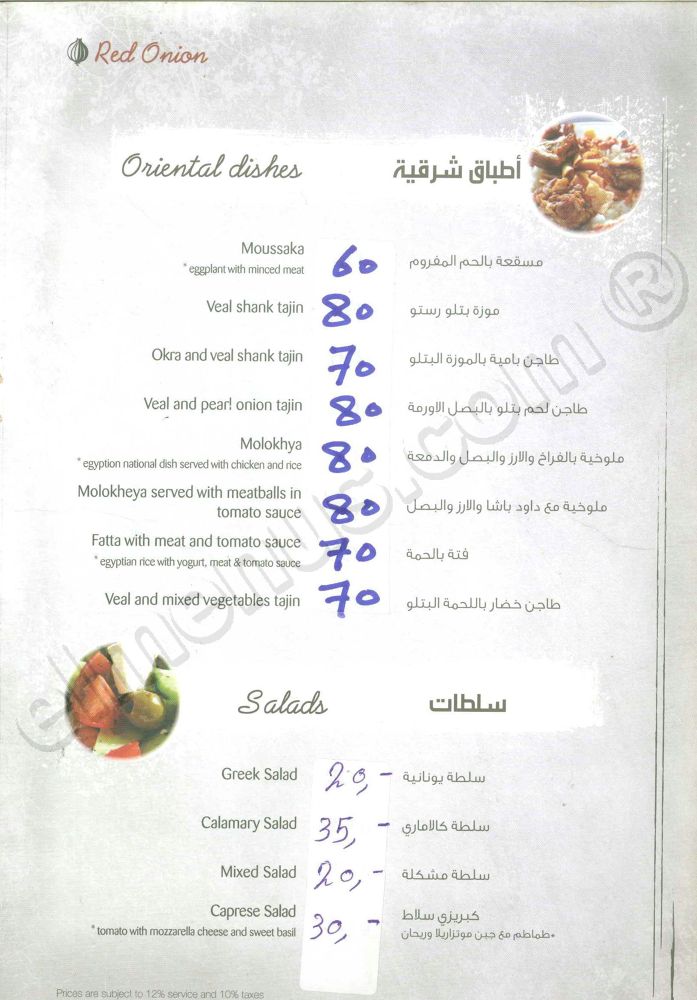 Red Onion
Oriental dishes أطباق شرقية
Moussaka 60 مسقعة بالحم المفروم
* eggplant with minced meat
Veal shank tajin 80 موزة بتلو رستو
Okra and veal shank tajin 70 طاجن بامية بالموزة البتلو
Veal and pearl onion tajin 80 طاجن لحم بتلو بالبصل الاورمة
Molokhya 80 ملوخية بالفراخ والارز والبصل والدمعة
* egyption national dish served with chicken and rice
Molokheya served with meatballs in
tomato sauce 80 ملوخية مع داود باشا والارز والبصل
Fatta with meat and tomato sauce 70 فتة بالحمة
* egyptian rice with yogurt, meat & tomato sauce
Veal and mixed vegetables tajin 70 طاجن خضار باللحمة البتلو
Salads سلطات
Greek Salad 20,- سلطة يونانية
Calamary Salad 35,- سلطة كالاماري
Mixed Salad 20,- سلطة مشكلة
Caprese Salad 30,- كبريزي سلاط
* tomato with mozzarella cheese and sweet basil *طماطم مع جبن موتزاريلا وريحان
Prices are subject to 12% service and 10% taxes
elmenus.com ®